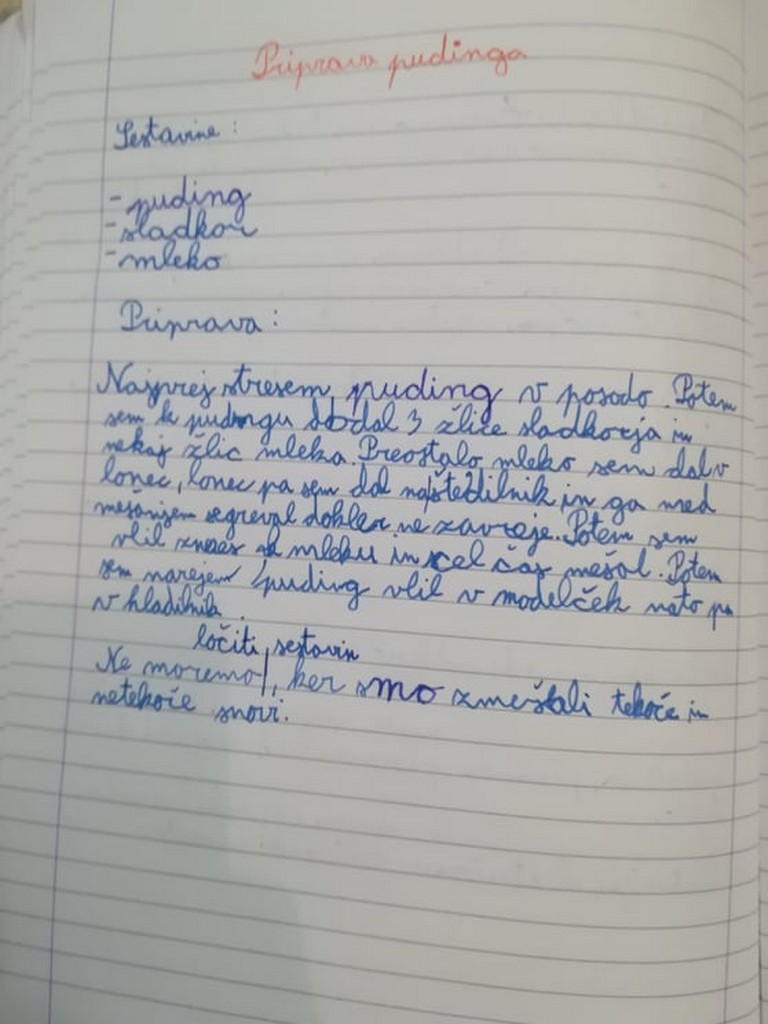 Priprava pudinga
Sestavine:
- puding
- sladkor
- mleko
Priprava:
Najprej stresem puding v posodo. Potem
sem k pudingu dodal 3 žlice sladkorja in
nekaj žlic mleka. Preostalo mleko sem dal v
lonec, lonec pa sem dal na štedilnik in ga med
mešanjem segreval dokler ne zavreje. Potem sem
vlil zmes k mleku in cel čas mešal. Potem
sem narejen puding vlil v modelček nato pa
v hladilnik.
ločiti sestavin
Ne moremo, ker smo zmešali tekoče in
netekoče snovi.